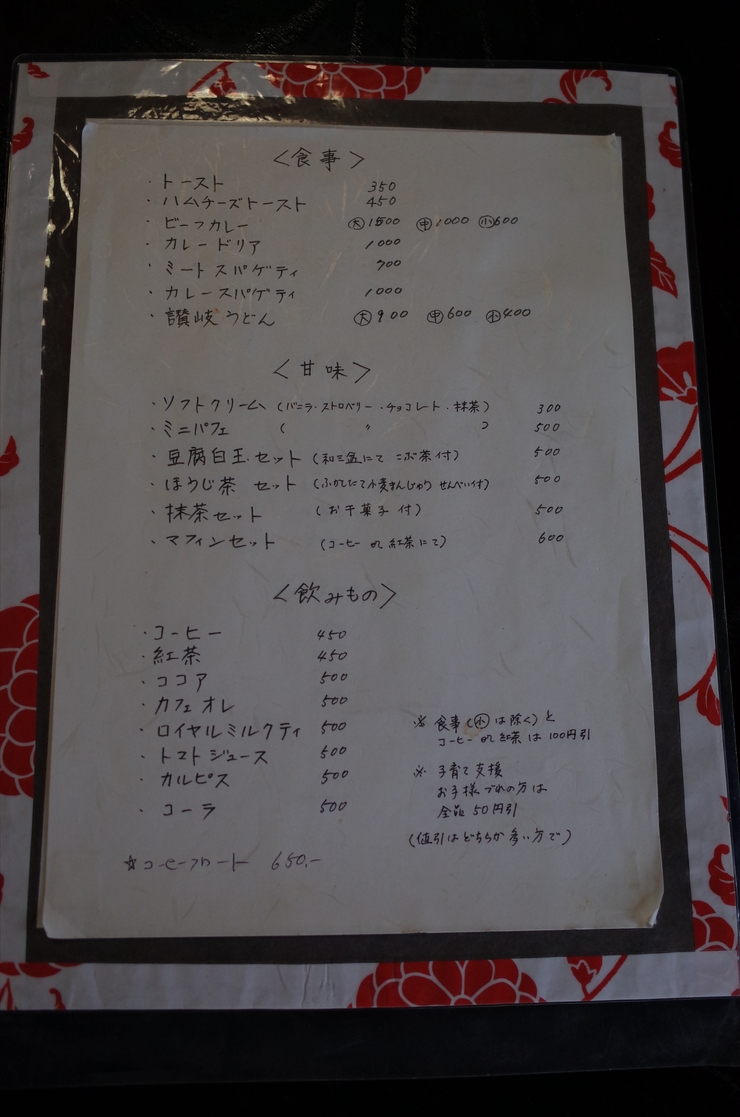 〈食事〉
・トースト 350
・ハムチーズトースト 450
・ビーフカレー ㊅1500 ㊥1000 ㊙600
・カレードリア 1000
・ミートスパゲティ 900
・カレースパゲティ 1000
・讃岐うどん 大900 ㊥600 小400
〈甘味〉
・ソフトクリーム (バニラ・ストロベリー・チョコレート・抹茶) 300
・ミニパフェ ( 〃 ) 500
・豆腐白玉セット (和三盆にて 茶付) 500
・ほうじ茶 セット (小麦まんじゅう せんべい付) 500
・抹茶セット (お干菓子付) 500
・マフィンセット (コーヒー or 紅茶にて) 600
〈飲みもの〉
・コーヒー 450
・紅茶 450
・ココア 500
・カフェオレ 500
・ロイヤルミルクティ 500
・トマトジュース 500
・カルピス 500
・コーラ 500
☆コーヒーフロート 650.-
※ 食事(小は除く)と
コーヒー or 紅茶は100円引
※ 子育て支援
お子様づれの方は
全品50円引
(値引はどちらか多い方で)